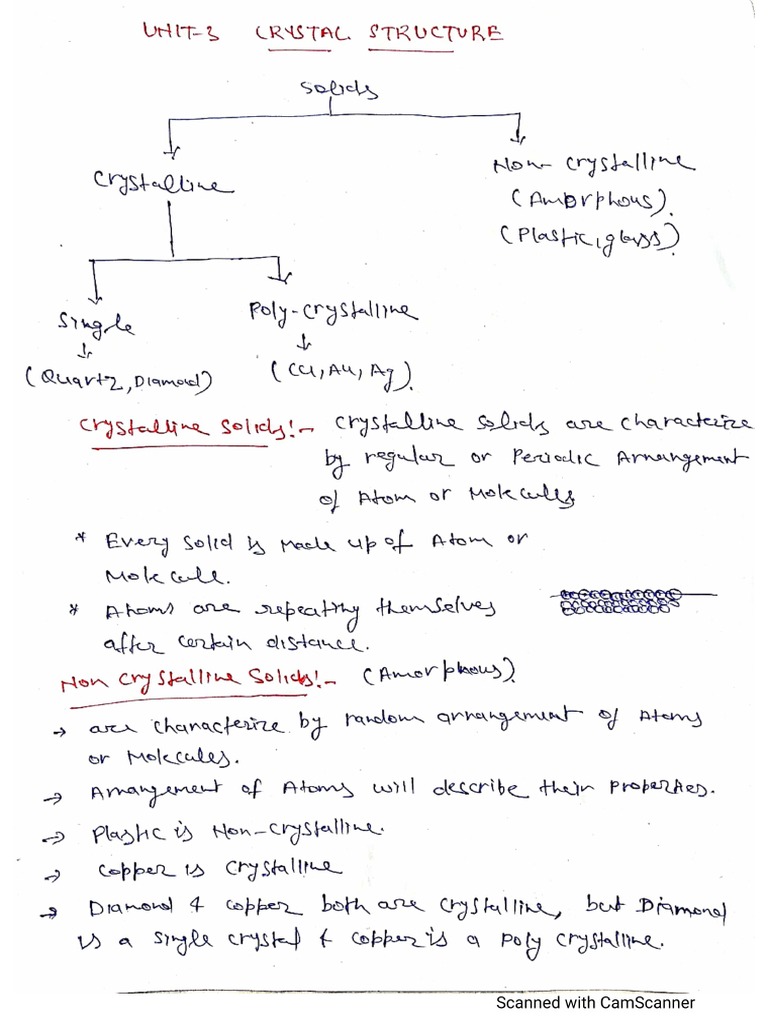 UNIT-3 CRYSTAL STRUCTURE
Solids
Crystalline
Non-crystalline
(Amorphous).
(Plastic, glass).
Single
Poly-crystalline
(Quartz, Diamond)
(Cu, Au, Ag).
Crystalline Solids:- Crystalline solids are characterize
by regular or Periodic Arrangement
of Atom or Molecules
* Every solid is made up of Atom or
Molecule.
* Atoms are repeating themselves
after certain distance.
Non Crystalline Solids:- (Amorphous).
→ are characterize by random arrangement of Atoms
or Molecules.
→ Arrangement of Atoms will describe their properties.
→ Plastic is Non-crystalline.
→ Copper is Crystalline
→ Diamond & copper both are crystalline, but Diamond
is a single crystal & copper is a poly crystalline.
Scanned with CamScanner